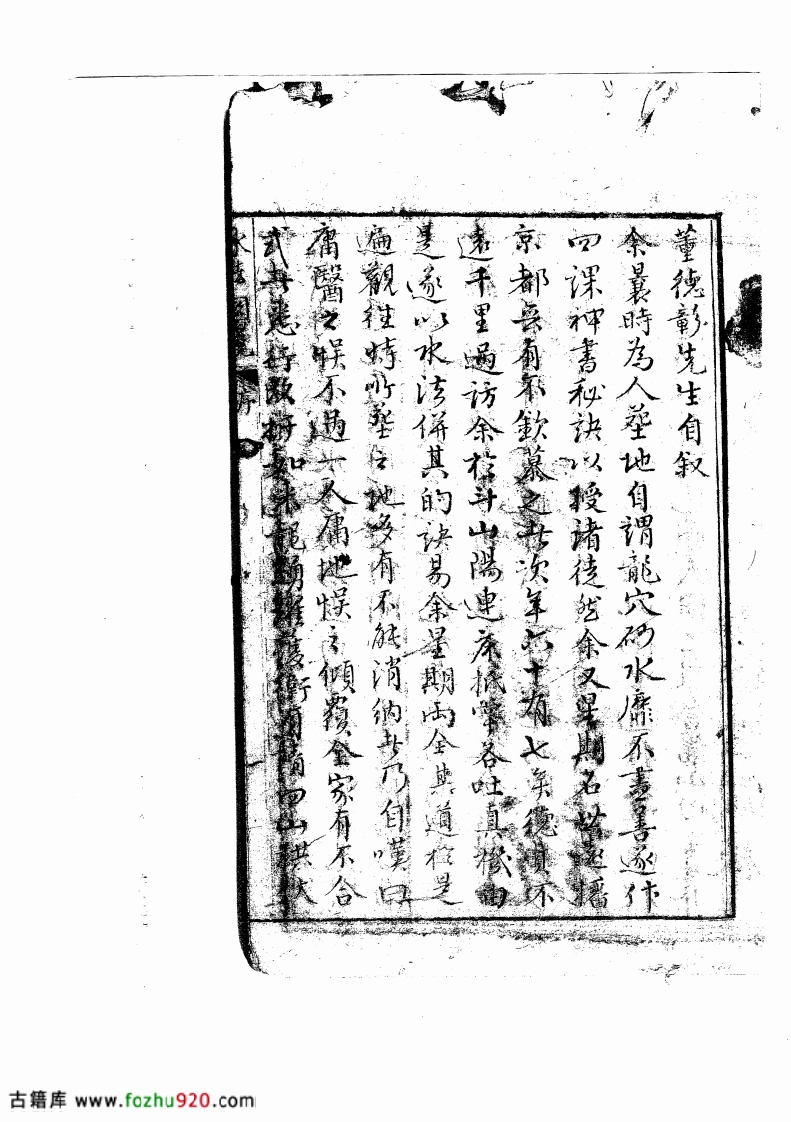 董德彰先生自叙
余曩時為人塟地自謂龍穴砂水靡不盡善遂作
四課神書秘訣以授諸徒然余又星期名世遂播
京都無有不欽慕之此次年六十有七矣德興不
遠千里過訪余於斗山陽連床抵掌各吐真機由
是遂以水法併其的訣易余星期兩全其道於是
遍觀徃時所塟之地多有不能消納此乃自嘆曰
庸醫之悞不過一人庸地悞之傾覆全家有不合
如未龍踴躍護衛有情四山拱
古籍库 www.fozhu920.com